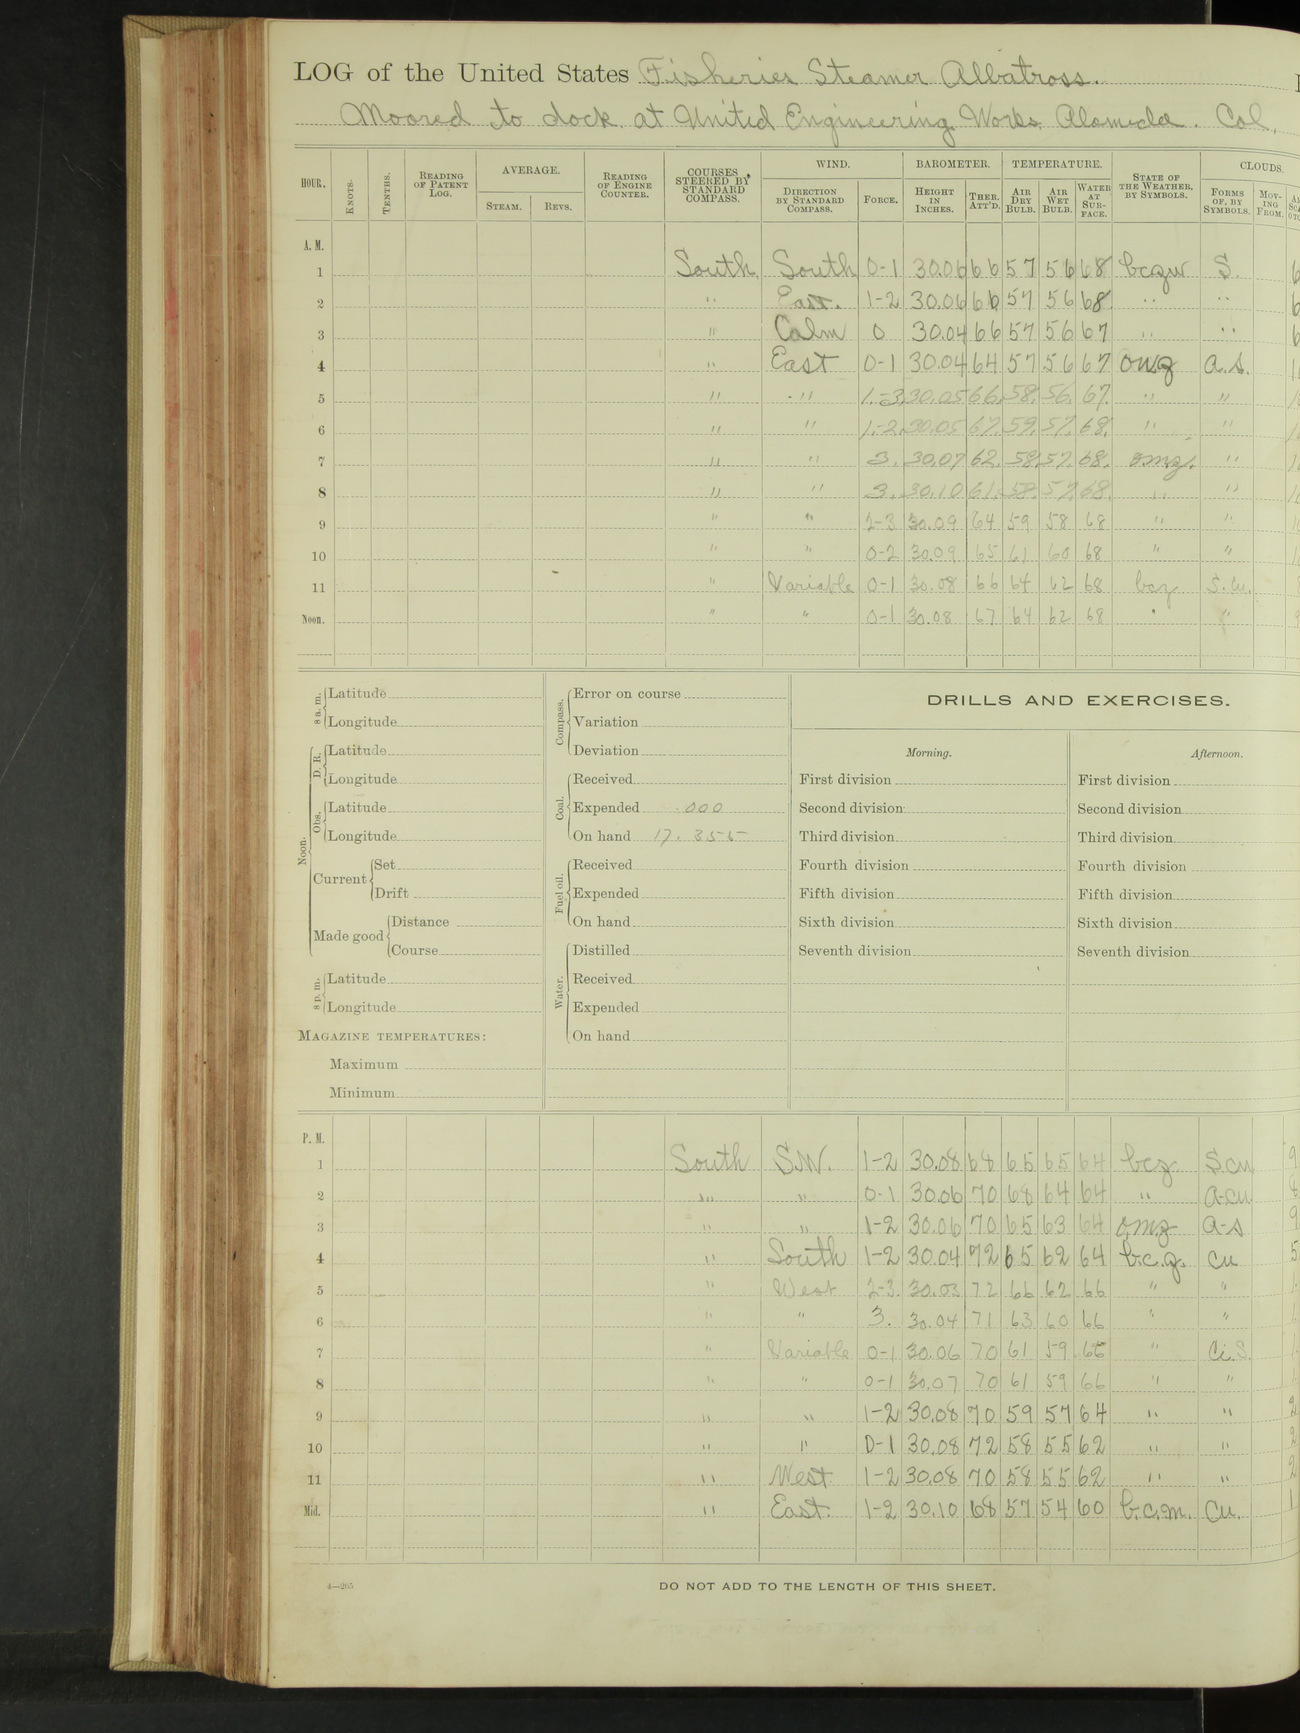 LOG of the United States Fisheries Steamer Albatross.
Moored to dock at United Engineering Works Alameda. Cal.
HOUR. KNOTS. TENTHS. READING OF PATENT LOG. AVERAGE. STEAM. REVS. READING OF ENGINE COUNTER. COURSES STEERED BY STANDARD COMPASS. WIND. DIRECTION BY STANDARD COMPASS. FORCE. BAROMETER. HEIGHT IN INCHES. THER. ATT'D. TEMPERATURE. AIR DRY BULB. AIR WET BULB. WATER AT SURFACE. STATE OF THE WEATHER, BY SYMBOLS. CLOUDS. FORMS OF, BY SYMBOLS. MOVING FROM.
A. M.
1 South South 0-1 30.06 66 57 56 68 bczw S. 6
2 " East. 1-2 30.06 66 57 56 68 " " 6
3 " Calm 0 30.04 66 57 56 67 " " 6
4 " East 0-1 30.04 64 57 56 67 owz a.s.
5 " " 1.-3. 30.05 66. 58. 56. 67. " "
6 " " 1.-2. 30.05 67. 59. 57. 68. " "
7 " " 3. 30.07 62. 58. 57. 68. omz. "
8 " " 3. 30.10 61. 58. 57. 68. " "
9 " " 2-3 30.09 64 59 58 68 " "
10 " " 0-2 30.09 65 61 60 68 " "
11 " Variable 0-1 30.08 66 64 62 68 bcz S.cu.
Noon. " " 0-1 30.08 67 64 62 68 " "
8 a. m. Latitude
Longitude
Noon. D. R. Latitude
Longitude
Obs. Latitude
Longitude
Current Set
Drift
Made good Distance
Course
8 p. m. Latitude
Longitude
MAGAZINE TEMPERATURES:
Maximum
Minimum
Compass. Error on course
Variation
Deviation
Coal. Received
Expended .000
On hand 17.355
Fuel oil. Received
Expended
On hand
Water. Distilled
Received
Expended
On hand
DRILLS AND EXERCISES.
Morning. Afternoon.
First division First division
Second division Second division
Third division Third division
Fourth division Fourth division
Fifth division Fifth division
Sixth division Sixth division
Seventh division Seventh division
P. M.
1 South S.W. 1-2 30.08 68 65 65 64 bcz S.cu 9
2 " " 0-1 30.06 70 68 64 64 " a-cu 8
3 " " 1-2 30.06 70 65 63 64 omz a-s 9
4 " South 1-2 30.04 72 65 62 64 b.c.z. cu 5
5 " West 2-3. 30.03 72 66 62 66 " "
6 " " 3. 30.04 71 63 60 66 " "
7 " Variable 0-1 30.06 70 61 59 66 " Ci.S.
8 " " 0-1 30.07 70 61 59 66 " "
9 " " 1-2 30.08 70 59 57 64 " " 2
10 " " 0-1 30.08 72 58 55 62 " " 2
11 " West 1-2 30.08 70 58 55 62 " " 2
Mid. " East. 1-2 30.10 68 57 54 60 b.c.m. Cu. 1
4—265
DO NOT ADD TO THE LENGTH OF THIS SHEET.